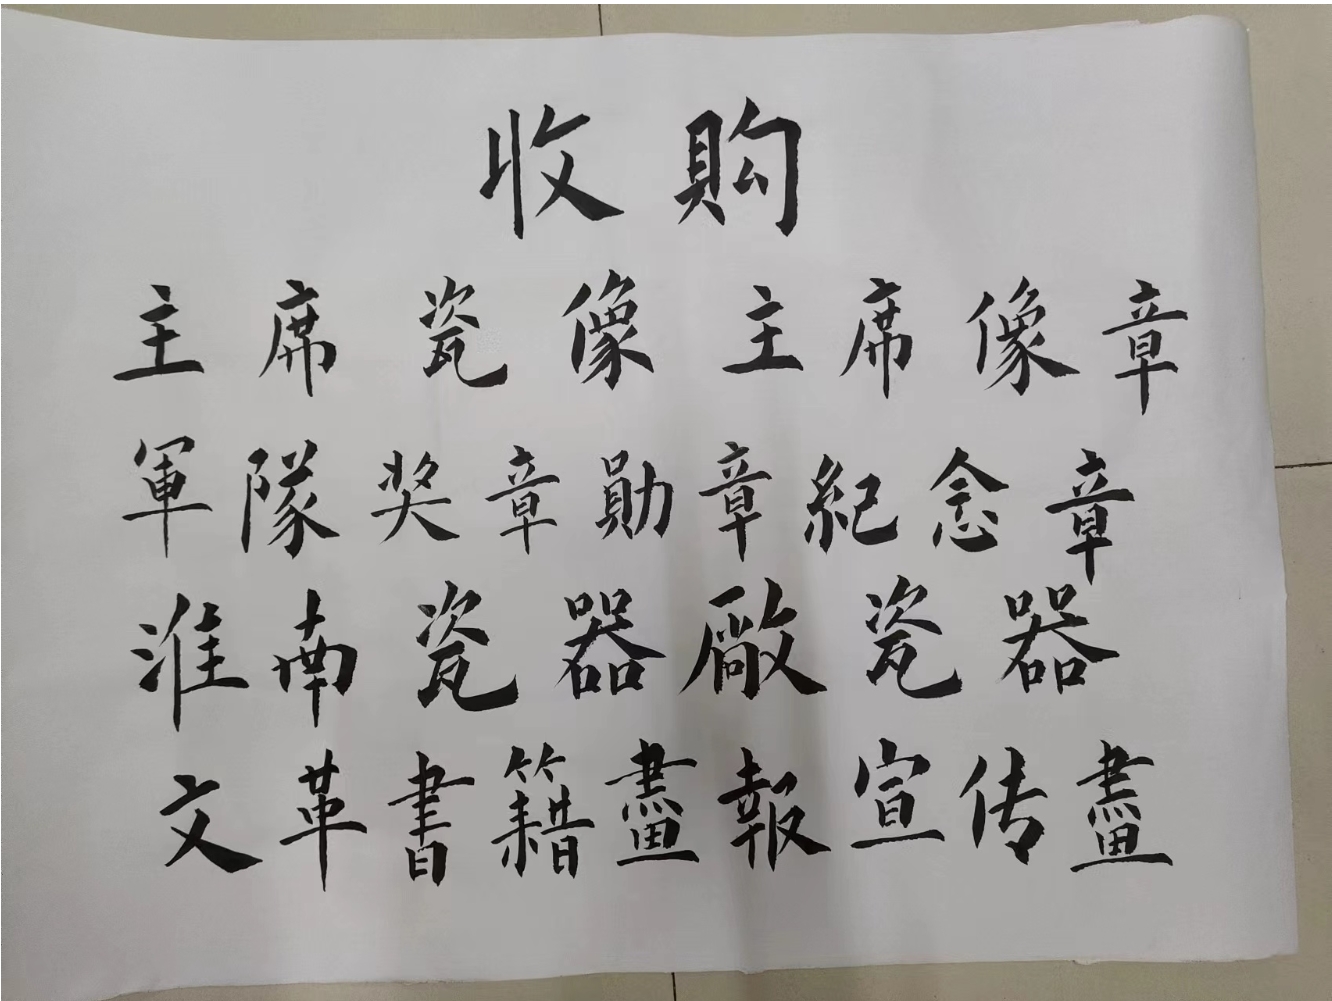 收购
主席瓷像主席像章
軍隊奖章勛章紀念章
淮南瓷器廠瓷器
文革書籍畫報宣传畫